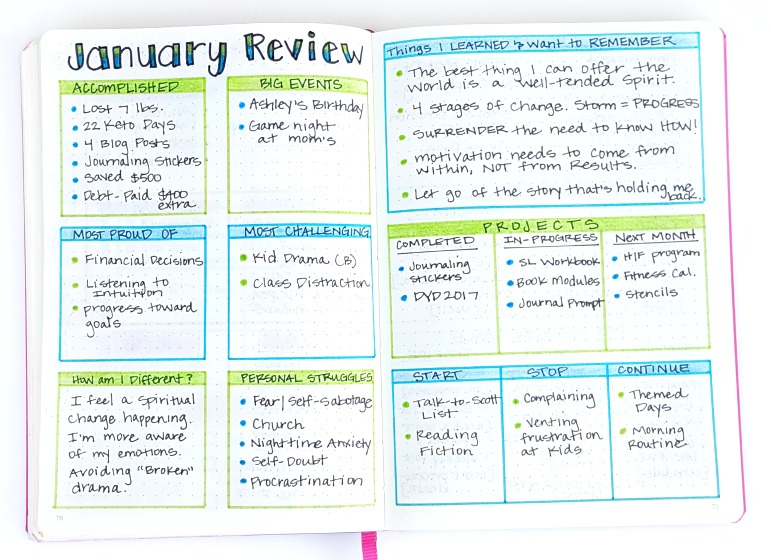 January Review
ACCOMPLISHED
Lost 7 lbs.
22 Keto Days
4 Blog Posts
Journaling Stickers
Saved $500
Debt-Paid $400
extra
BIG EVENTS
Ashley's Birthday
Game night
at mom's
MOST PROUD OF
Financial Decisions
Listening to
Intuition
progress toward
goals
MOST CHALLENGING
Kid Drama (B)
Class Distraction
How am I Different?
I feel a spiritual
change happening.
I'm more aware
of my emotions.
Avoiding "Broken"
drama.
PERSONAL STRUGGLES
Fear/Self-Sabotage
Church
Nighttime Anxiety
Self-Doubt
Procrastination
70
Things I LEARNED & Want to REMEMBER
The best thing I can offer the
world is a well-tended Spirit.
4 stages of change. Storm = PROGRESS
SURRENDER the need to know HOW!
motivation needs to come from
within, NOT from Results.
Let go of the story that's holding me
back.
PROJECTS
COMPLETED
Journaling
stickers
DYD 2017
IN-PROGRESS
SL Workbook
Book Modules
Journal Prompt
NEXT MONTH
HIF program
Fitness Cal.
Stencils
START
Talk-to-Scott
List
Reading
Fiction
STOP
Complaining
Venting
frustration
at Kids
CONTINUE
Themed
Days
Morning
Routine
71